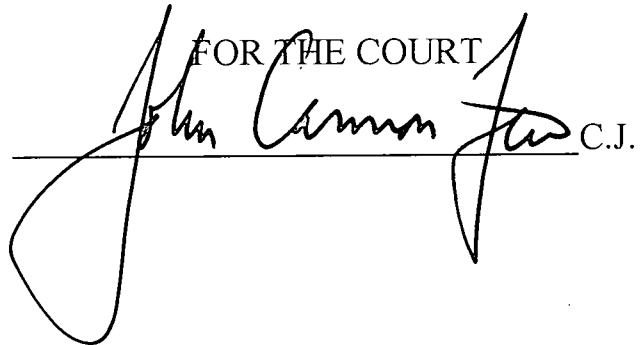 FOR THE COURT
John Cannon Few C.J.